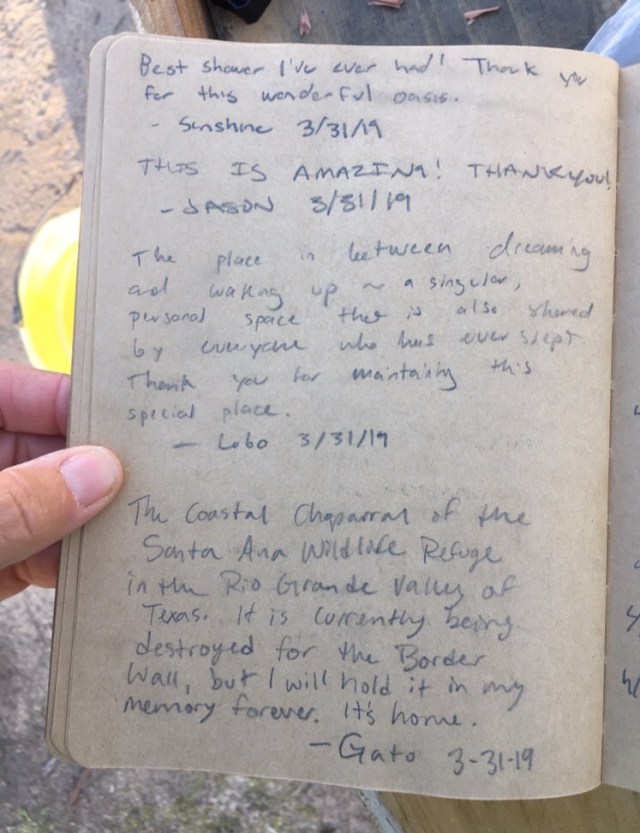 Best shower I've ever had! Thank you
for this wonderful oasis.
- Sunshine 3/31/19
THIS IS AMAZING! THANK YOU!
- JASON 3/31/19
The place in between dreaming
and waking up ~ a singular,
personal space that is also shared
by everyone who has ever slept.
Thank you for maintaining this
special place.
— Lobo 3/31/19
The Coastal Chaparral of the
Santa Ana Wildlife Refuge
in the Rio Grande Valley of
Texas. It is currently being
destroyed for the Border
Wall, but I will hold it in my
memory forever. It's home.
- Gato 3-31-19